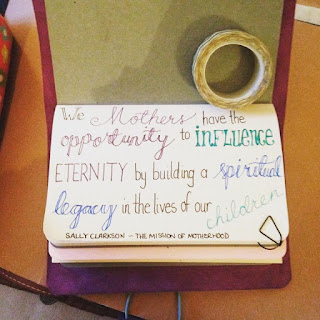 We Mothers have the
opportunity to INFLUENCE
ETERNITY by building a spiritual
legacy in the lives of our children
SALLY CLARKSON - THE MISSION OF MOTHERHOOD